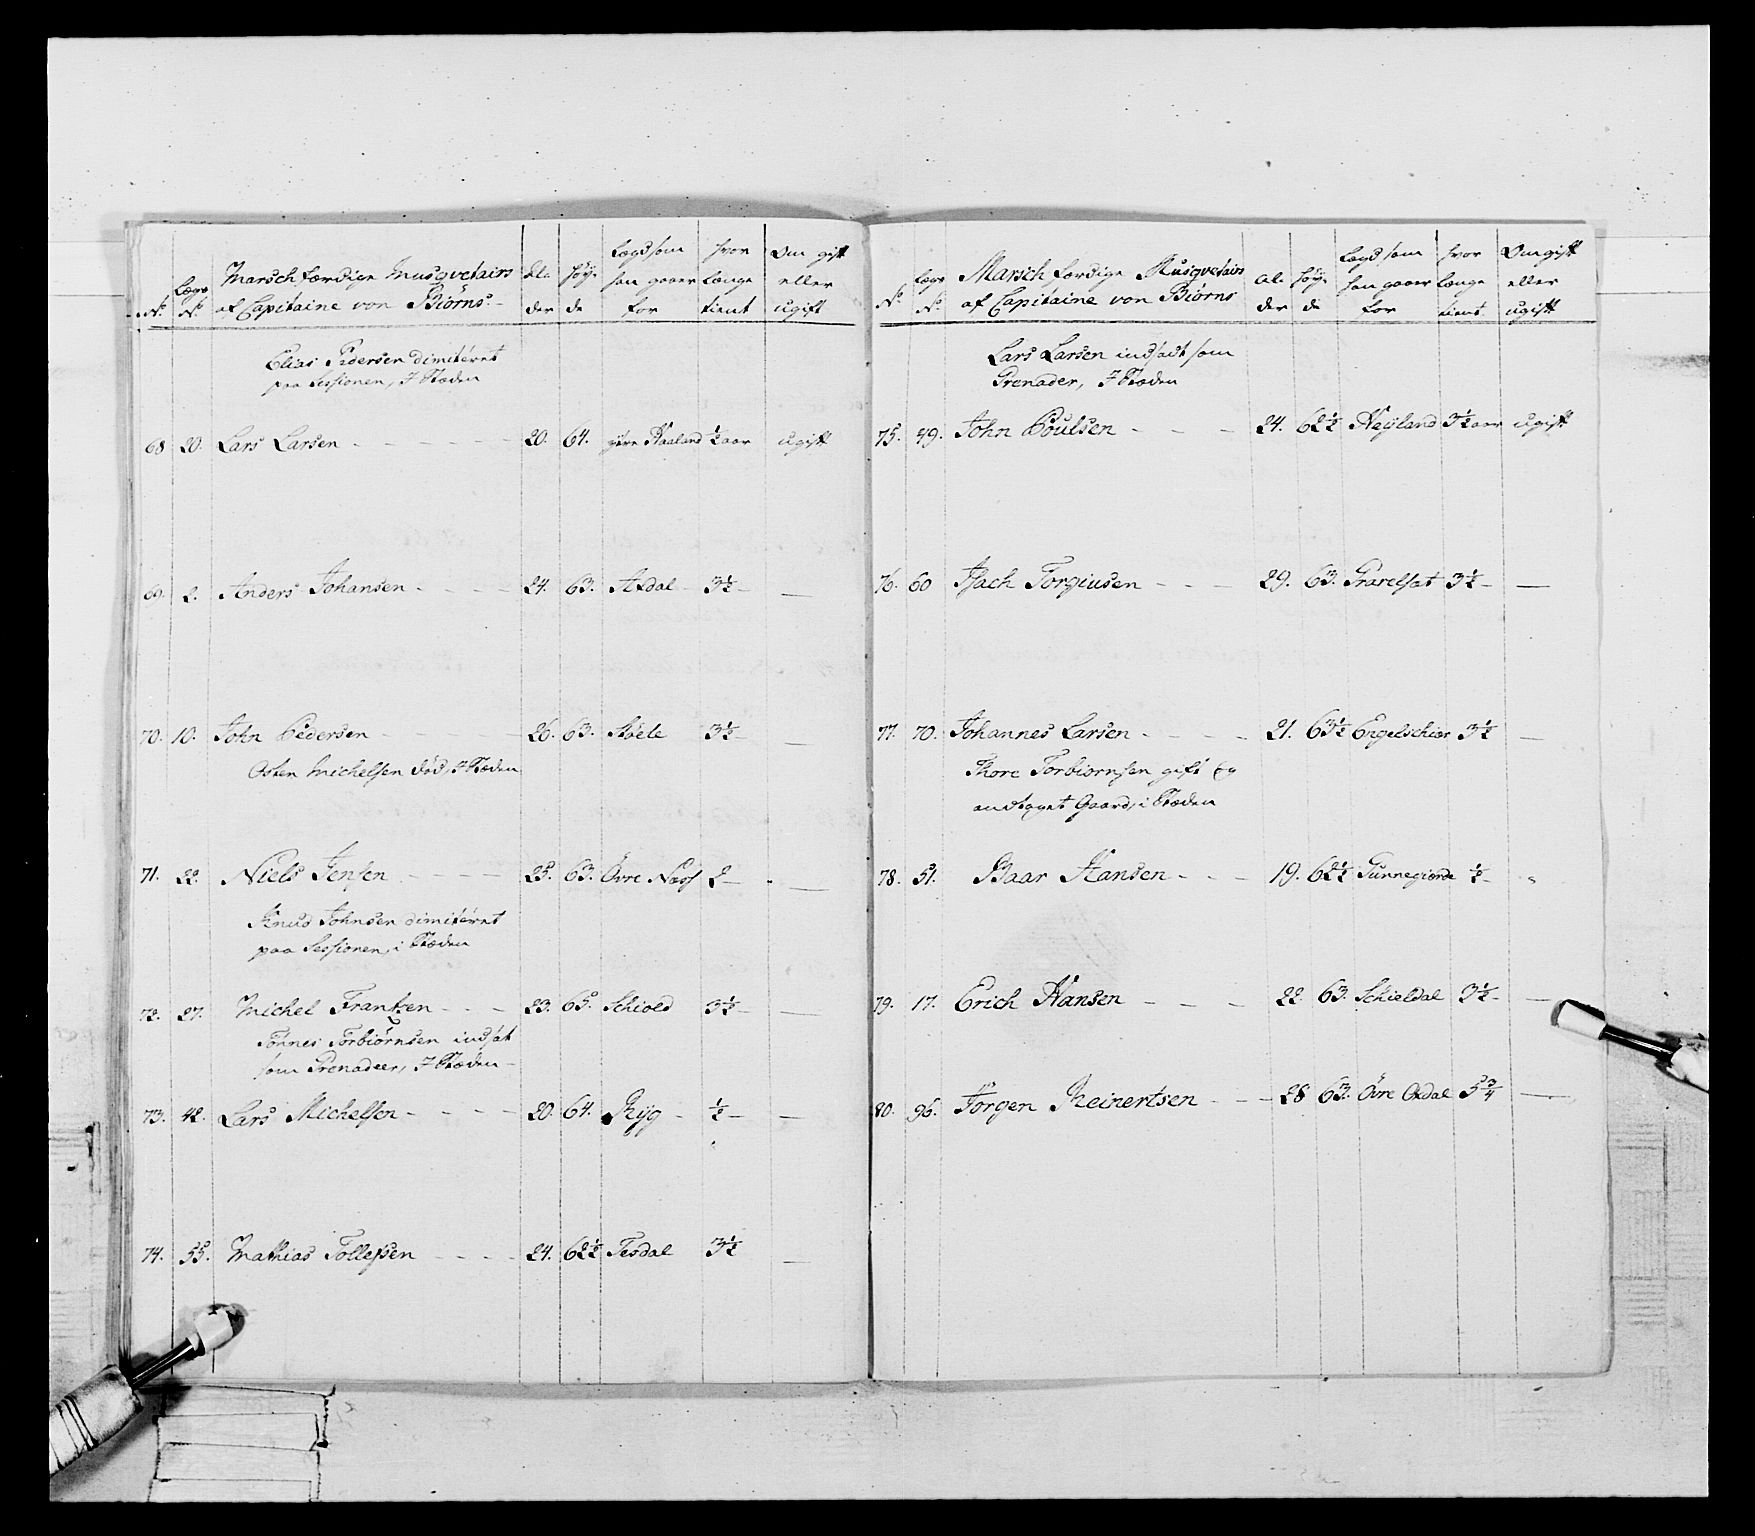 No. Lægs No. Marsch færdige Musqvetairs af Capitaine von Biørns Al- der Høy- de Lægd som han gaaer for hvor længe tient Om gift eller ugift
Elias Pedersen dimiteret
paa Sessionen, I Stæden
68 20. Lars Larsen 20. 64. Haaland ½ aar ugift
69. 2. Anders Johansen 24. 63. Axdal 3½ —
70. 10. John Pedersen 26. 63. 3½ —
Osten Michelsen død, I Stæden
71. 22. Niels Jensen 25. 63. Øvre Næss 2 —
Knud Johnsen dimiteret
paa Sessionen, i Stæden
72. 27. Michel Frantzen 23. 65. Schiold 3½ —
Tønnes Torbiørnsen indsat
som Grenadeer, I Stæden
73. 42. Lars Michelsen 20. 64. Ryg ½ —
74. 55. Mathias Tollefsen 24. 62½ Tesdal 3½ —
No. Lægs No. Marsch færdige Musqvetairs af Capitaine von Biørns Al- der Høy- de Lægd som han gaaer for hvor længe tient Om gift eller ugift
Lars Larsen indsadt som
Grenader, I Stæden
75. 49. John Poulsen 24. 62½ Heyland 3½ aar ugift
76. 60 Isach Torgiusen 29. 63. 3½ —
77. 70. Johannes Larsen 21. 63½ Engelschiør 3½ —
Thore Torbiørnsen gift og
andtaget Gaard, i Stæden
78. 51. Baar Hansen 19. 62½ ½ "
79. 17. Erich Hansen 22. 63. Schieldal 3½ —
80. 96. Jørgen Reinertsen 28 63. Øvre Oxdal 5¾ —